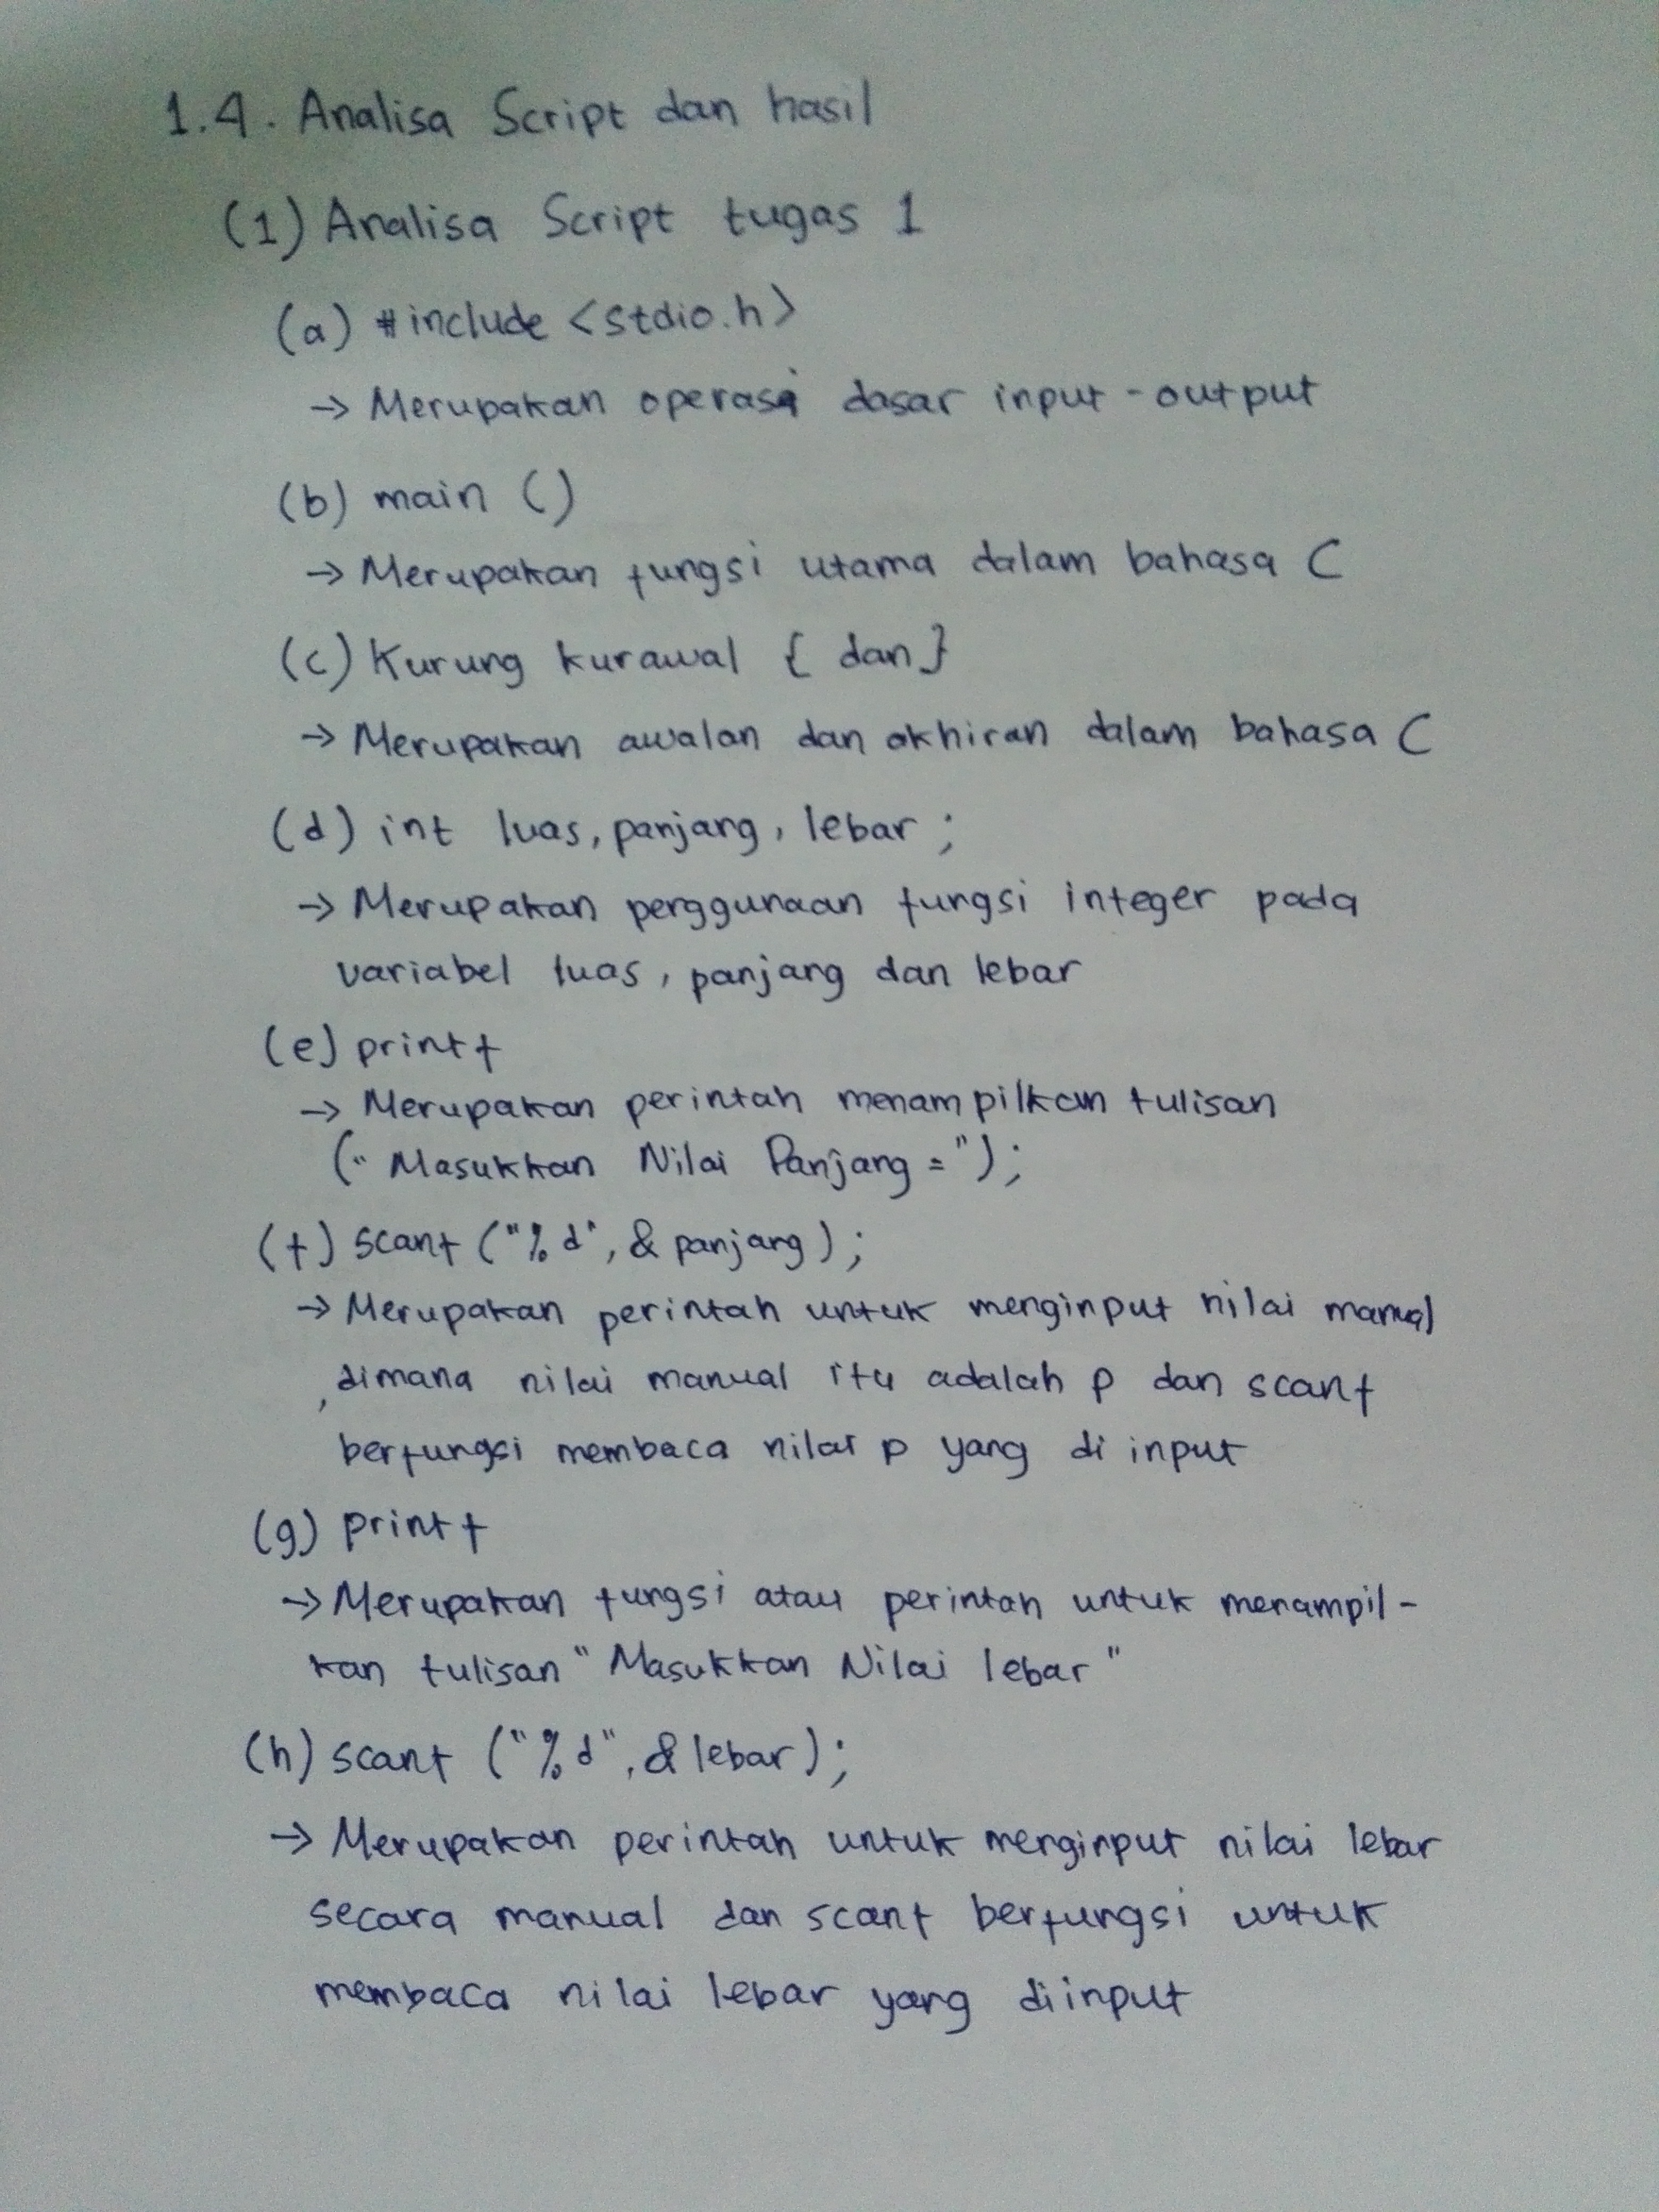 1.4. Analisa Script dan hasil
(1) Analisa Script tugas 1
(a) #include <stdio.h>
→ Merupakan operasi dasar input-output
(b) main ()
→ Merupakan fungsi utama dalam bahasa C
(c) Kurung kurawal { dan }
→ Merupakan awalan dan akhiran dalam bahasa C
(d) int luas, panjang, lebar ;
→ Merupakan penggunaan fungsi integer pada
variabel luas, panjang dan lebar
(e) printf
→ Merupakan perintah menampilkan tulisan
(" Masukkan Nilai Panjang = ");
(f) scanf ("%d", & panjang);
→ Merupakan perintah untuk menginput nilai manual
, dimana nilai manual itu adalah p dan scanf
berfungsi membaca nilai p yang di input
(g) printf
→ Merupakan fungsi atau perintah untuk menampil-
kan tulisan "Masukkan Nilai lebar"
(h) scanf ("%d", & lebar);
→ Merupakan perintah untuk menginput nilai lebar
secara manual dan scanf berfungsi untuk
membaca nilai lebar yang diinput